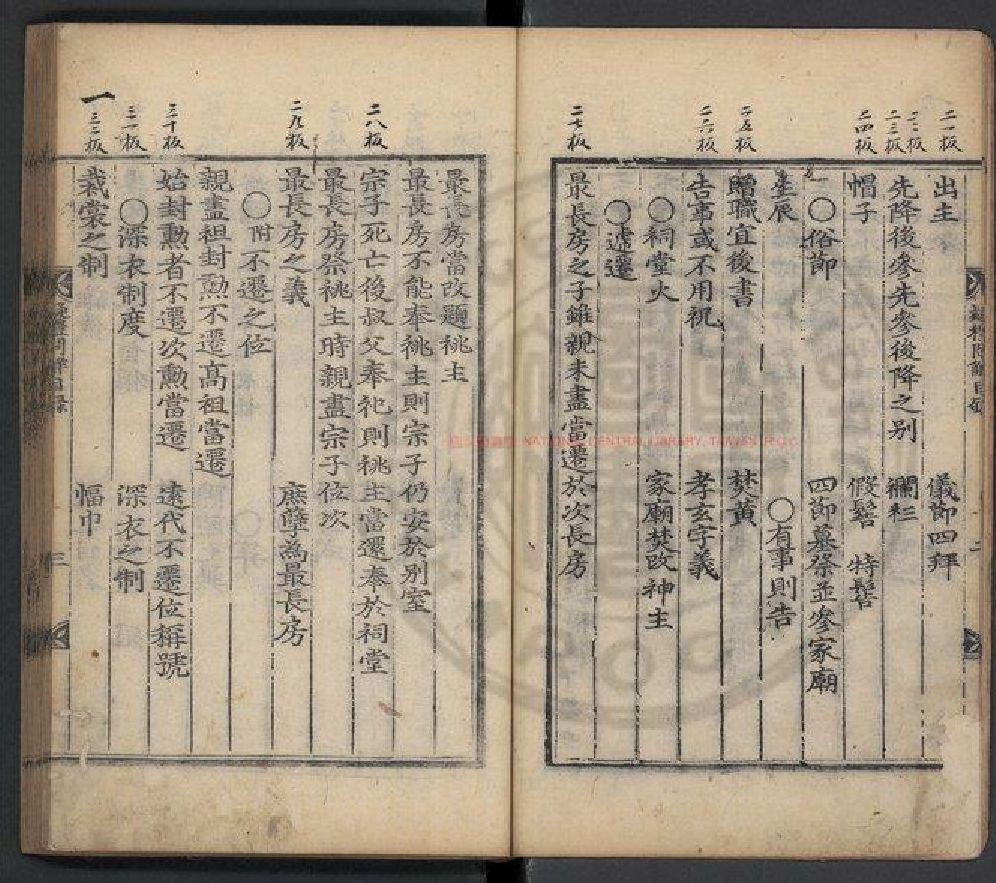 二一板
出主 儀節四拜
二二板
先降後參先參後降之別 襴衫
二三板
二四板
帽子 假髻 特髻
○俗節 四節墓祭並參家廟
生辰 ○有事則告
二五板
贈職宜後書 焚黃
二六板
告事或不用祝 孝玄字義
○祠堂火 家廟焚改神主
○遞遷
二七板
最長房之子雖親未盡當遷於次長房
最長房當改題祧主
最長房不能奉祧主則宗子仍安於別室
二八板
宗子死亡後叔父奉祀則祧主當還奉於祠堂
最長房祭祧主時親盡宗子位次
二九板
最長房之義 庶孽為最長房
○附不遷之位
親盡祖封勳不遷高祖當遷
三十板
始封勳者不遷次勳當遷 遠代不遷位稱號
三一板
○深衣制度 深衣之制
一
三二板
裁裳之制 幅巾
三
NATIONAL CENTRAL LIBRARY, TAIWAN, R.O.C.